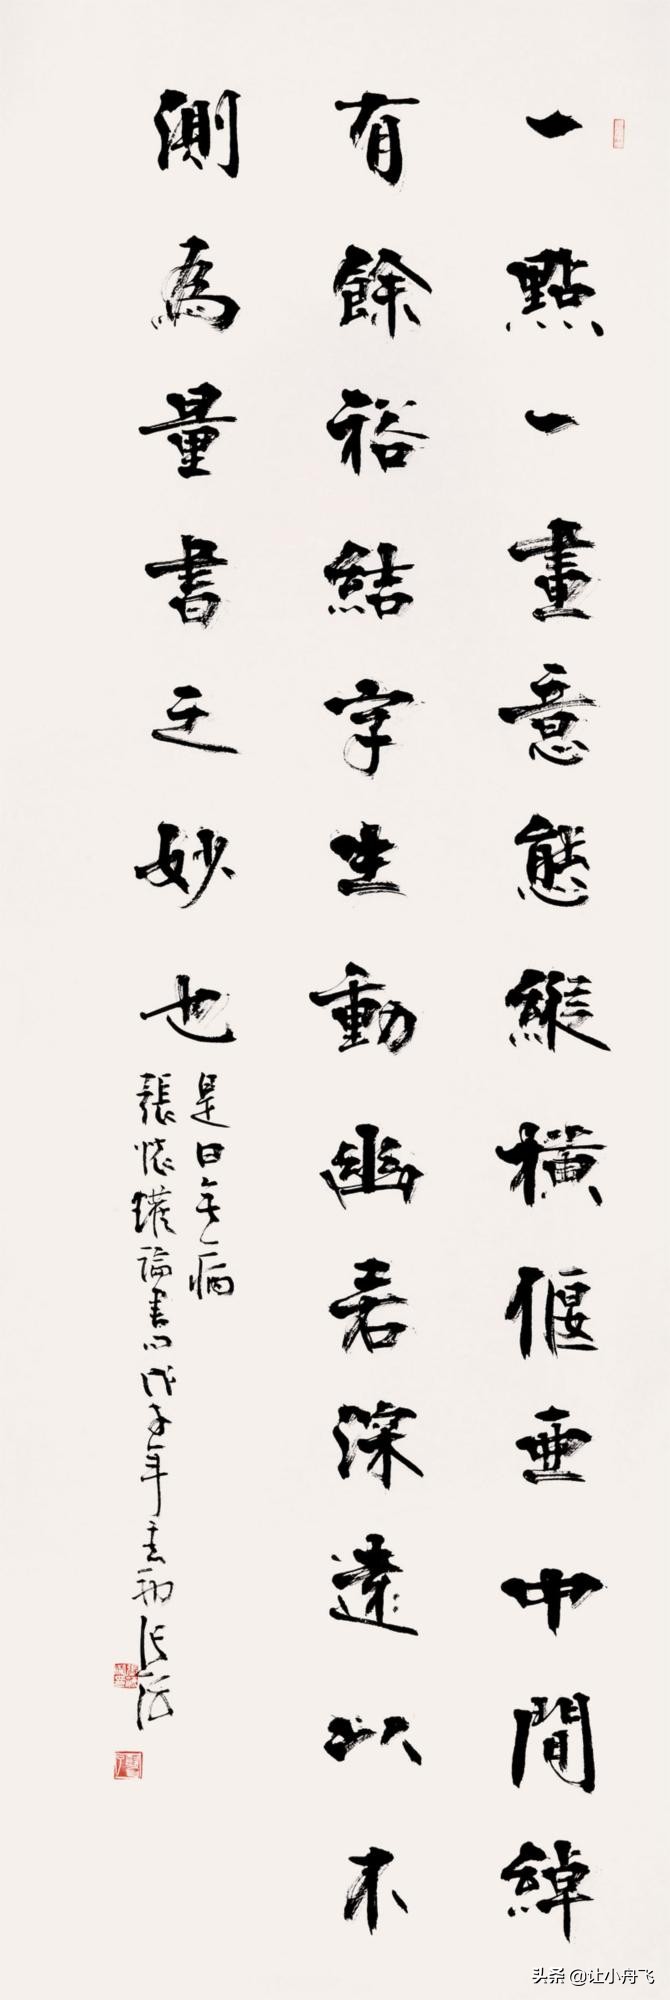 一點一畫意態縱橫偃亞中間綽
有餘裕結字生動幽若深遠以未
測為量書之妙也
是曰無病
張懷瓘論書 戊子年
头条 @让小舟飞